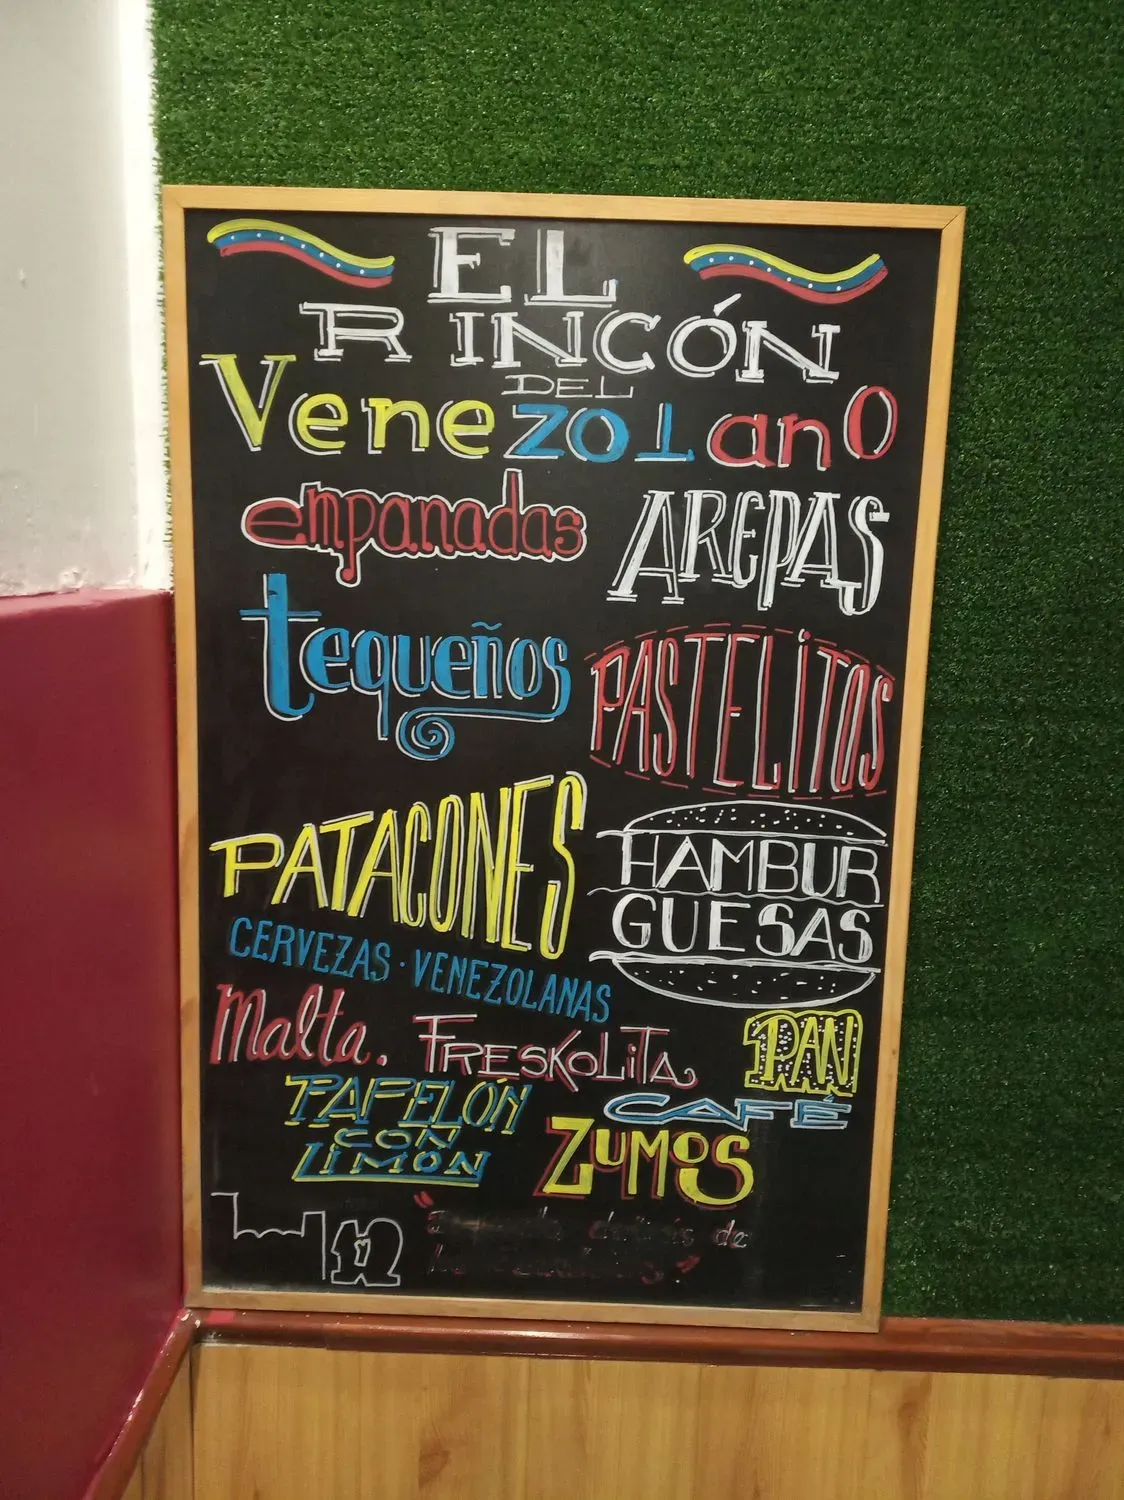 EL
RINCÓN
DEL
VenezOLanO
empanadas
AREPAS
tequeños
PASTELiTOS
PATACONES
HAMBUR
GUESAS
CERVEZAS · VENEZOLANAS
Malta. FRESKOLiTA
PAN
PAPELÓN
CON
LIMÓN
CAFÉ
ZUMOS
de